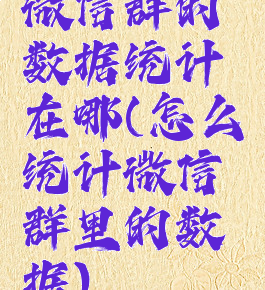 微信群的
数据统计
在哪(怎么
统计微信
群里的数
据)